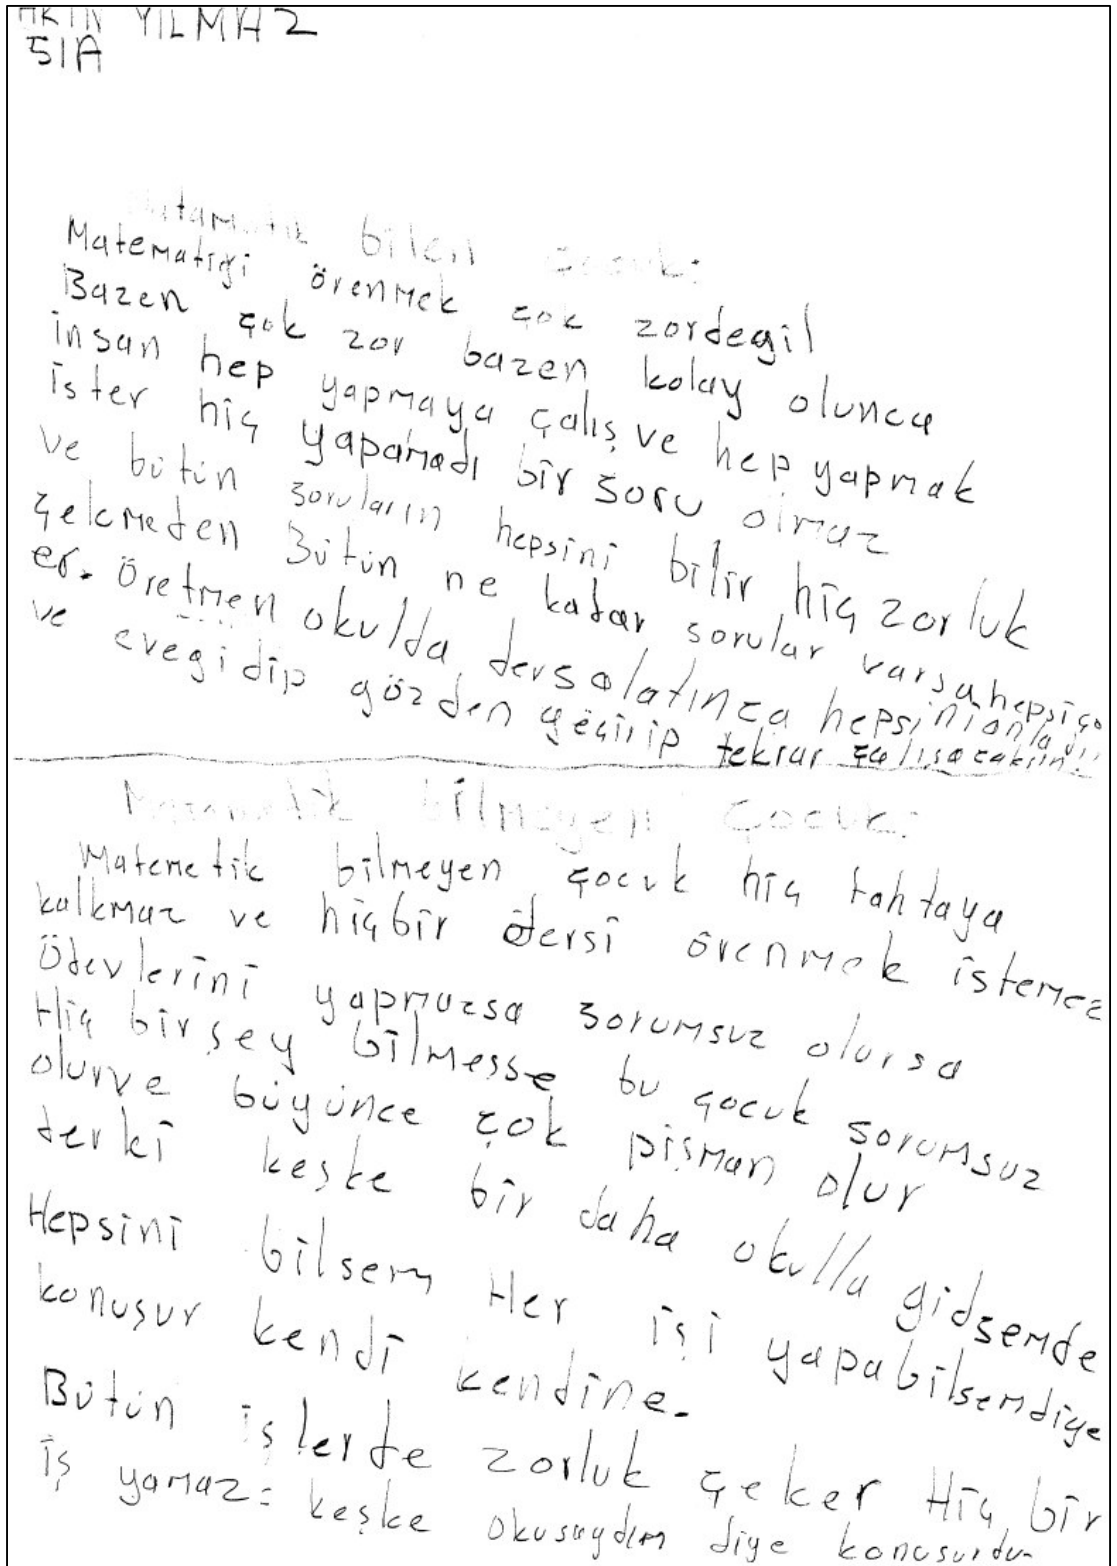 AKIN YILMAZ
5/A
Matamatik bilen çocuk:
Matematiği örenmek çok zordegil
Bazen çok zor bazen kolay olunca
insan hep yapmaya çalış ve hep yapmak
ister hiç yapamadı bir soru olmaz
ve bütün soruların hepsini bilir hiç zorluk
çekmeden Bütün ne kadar sorular varsa hepsi çö
er. Öretmen okulda dersalatınca hepsini
ve evegidip gözden geçirip tekrar çalışacaksın!!
bilmeyen çocuk:
Matemetik bilmeyen çocuk hiç tahtaya
kalkmaz ve hiçbir dersi örenmek istemez
Ödevlerini yapmazsa sorumsuz olursa
Hiç birşey bilmesse bu çocuk sorumsuz
olurve büyünce çok pişman olur
derki keşke bir daha okulla gidsemde
Hepsini bilsem Her işi yapabilsemdiye
konuşur kendi kendine.
Bütün işlerde zorluk çeker Hiç bir
iş yamaz= keşke okusaydım diye